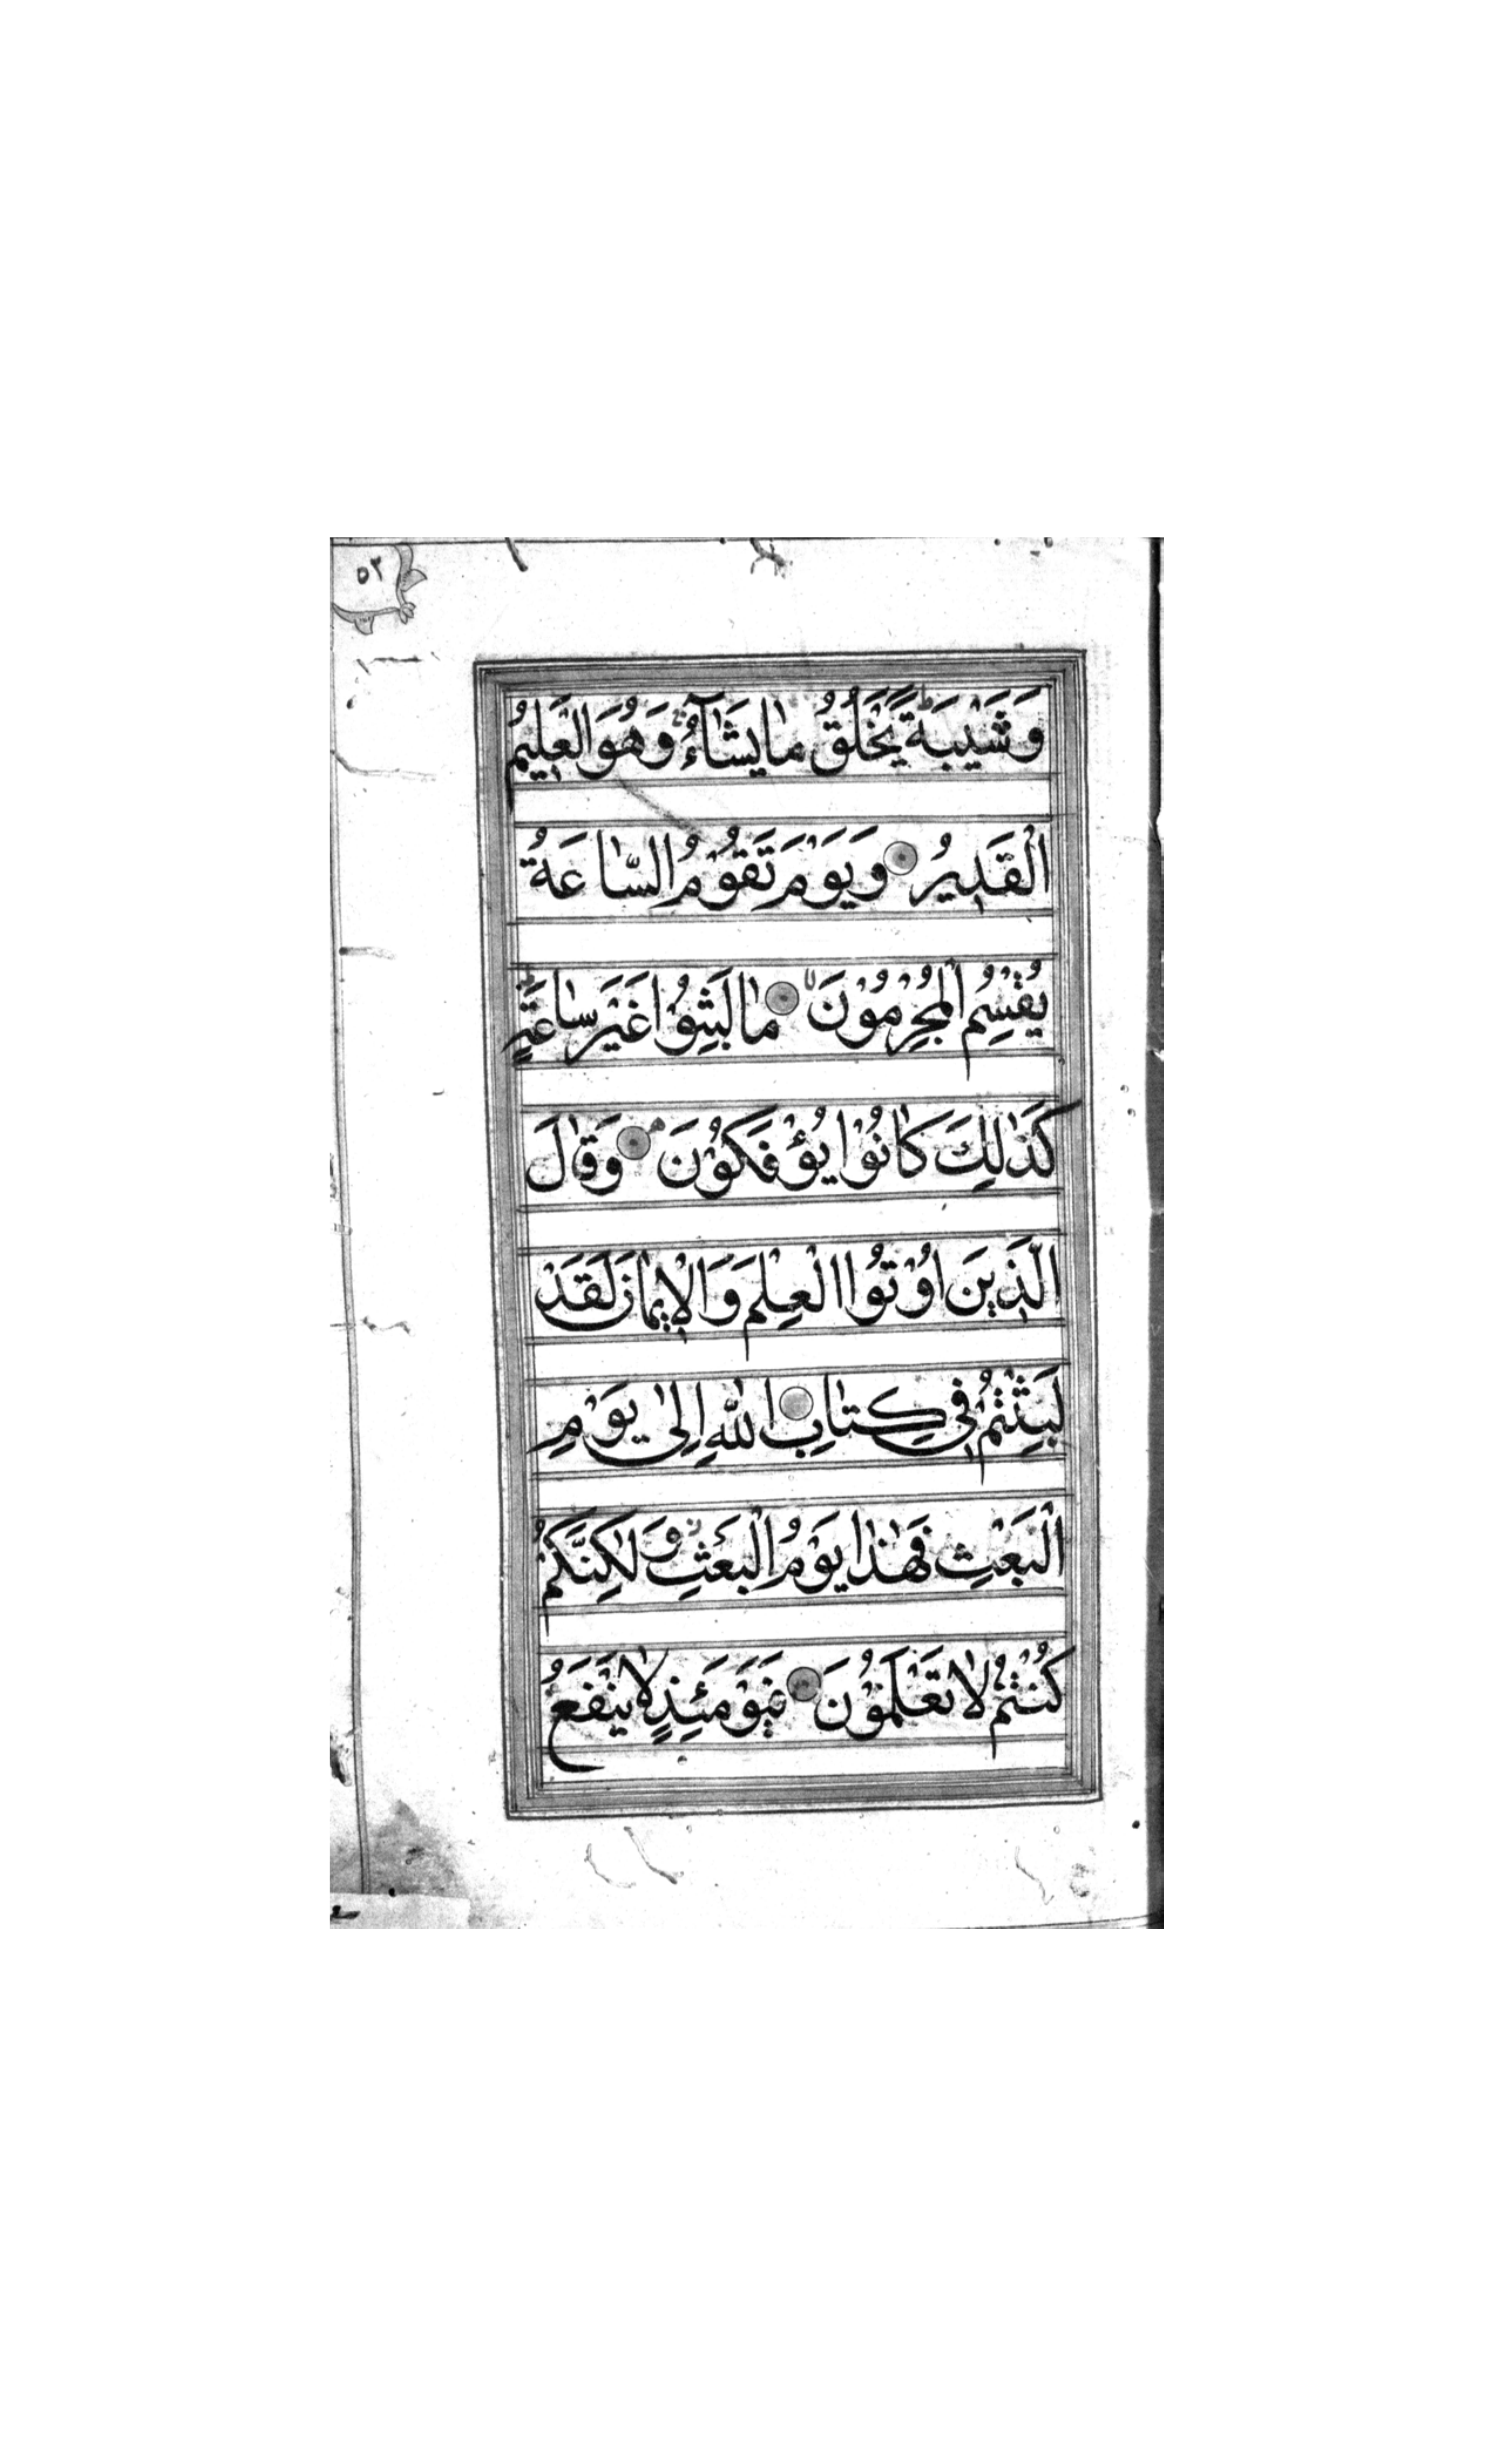 ٥٢
وَشَيْبَةً يَخْلُقُ مٰا يَشٰآءُ وَهُوَ الْعَلِيمُ
الْقَدِيرُ وَيَوْمَ تَقُوْمُ السّٰاعَةُ
يُقْسِمُ الْمُجْرِمُوْنَ مٰا لَبِثُوْا غَيْرَ سٰاعَةٍ
كَذٰلِكَ كٰانُوْا يُؤْفَكُوْنَ وَقٰالَ
الَّذِينَ اُوْتُوا الْعِلْمَ وَالْاِيمٰانَ لَقَدْ
لَبِثْتُمْ فِي كِتٰابِ اللّٰهِ اِلٰى يَوْمِ
الْبَعْثِ فَهٰذٰا يَوْمُ الْبَعْثِ وَلٰكِنَّكُمْ
كُنْتُمْ لٰا تَعْلَمُوْنَ فَيَوْمَئِذٍ لٰا يَنْفَعُ